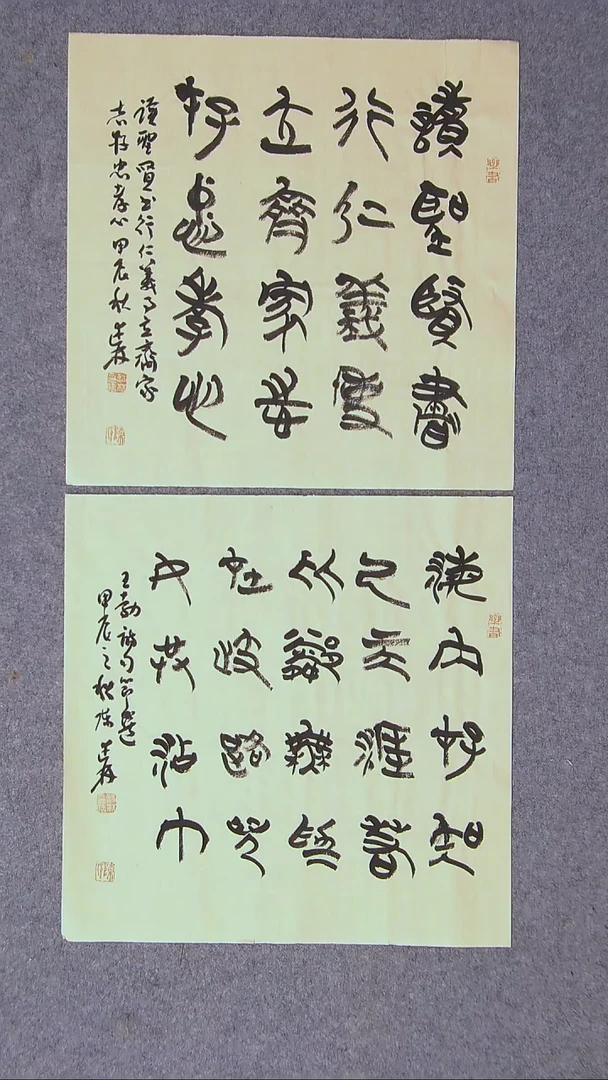 讀聖賢書
行仁義事
立齊家志
存忠孝心
讀聖賢书行仁義事立齊家
志存忠孝心甲辰秋
海内存知
己天涯若
比鄰無爲
在岐路兒
女共沾巾
王勃詩句節選
甲辰之秋